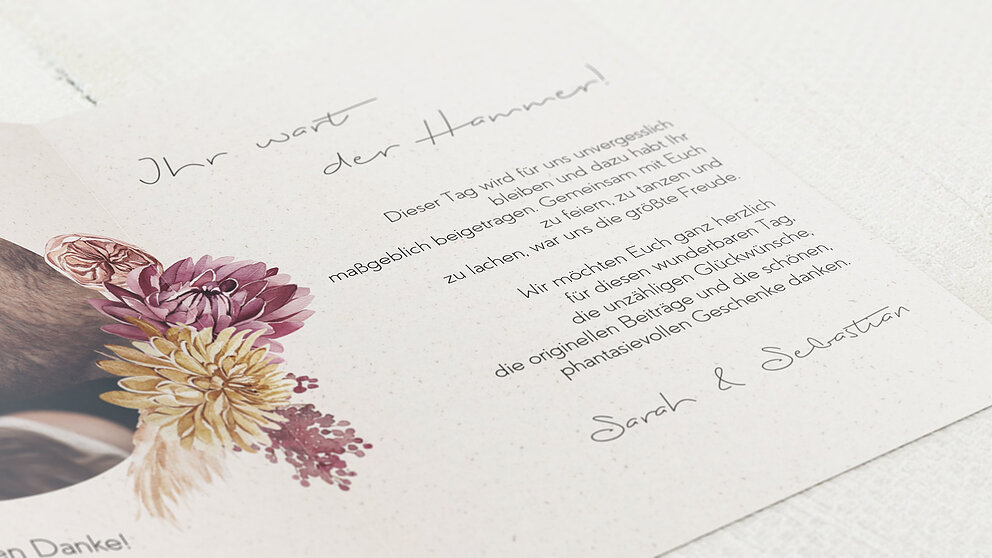 Ihr wart
der Hammer!
Dieser Tag wird für uns unvergesslich
bleiben und dazu habt Ihr
maßgeblich beigetragen. Gemeinsam mit Euch
zu feiern, zu tanzen und
zu lachen, war uns die größte Freude.
Wir möchten Euch ganz herzlich
für diesen wunderbaren Tag,
die unzähligen Glückwünsche,
die originellen Beiträge und die schönen,
phantasievollen Geschenke danken.
Sarah & Sebastian
Danke!